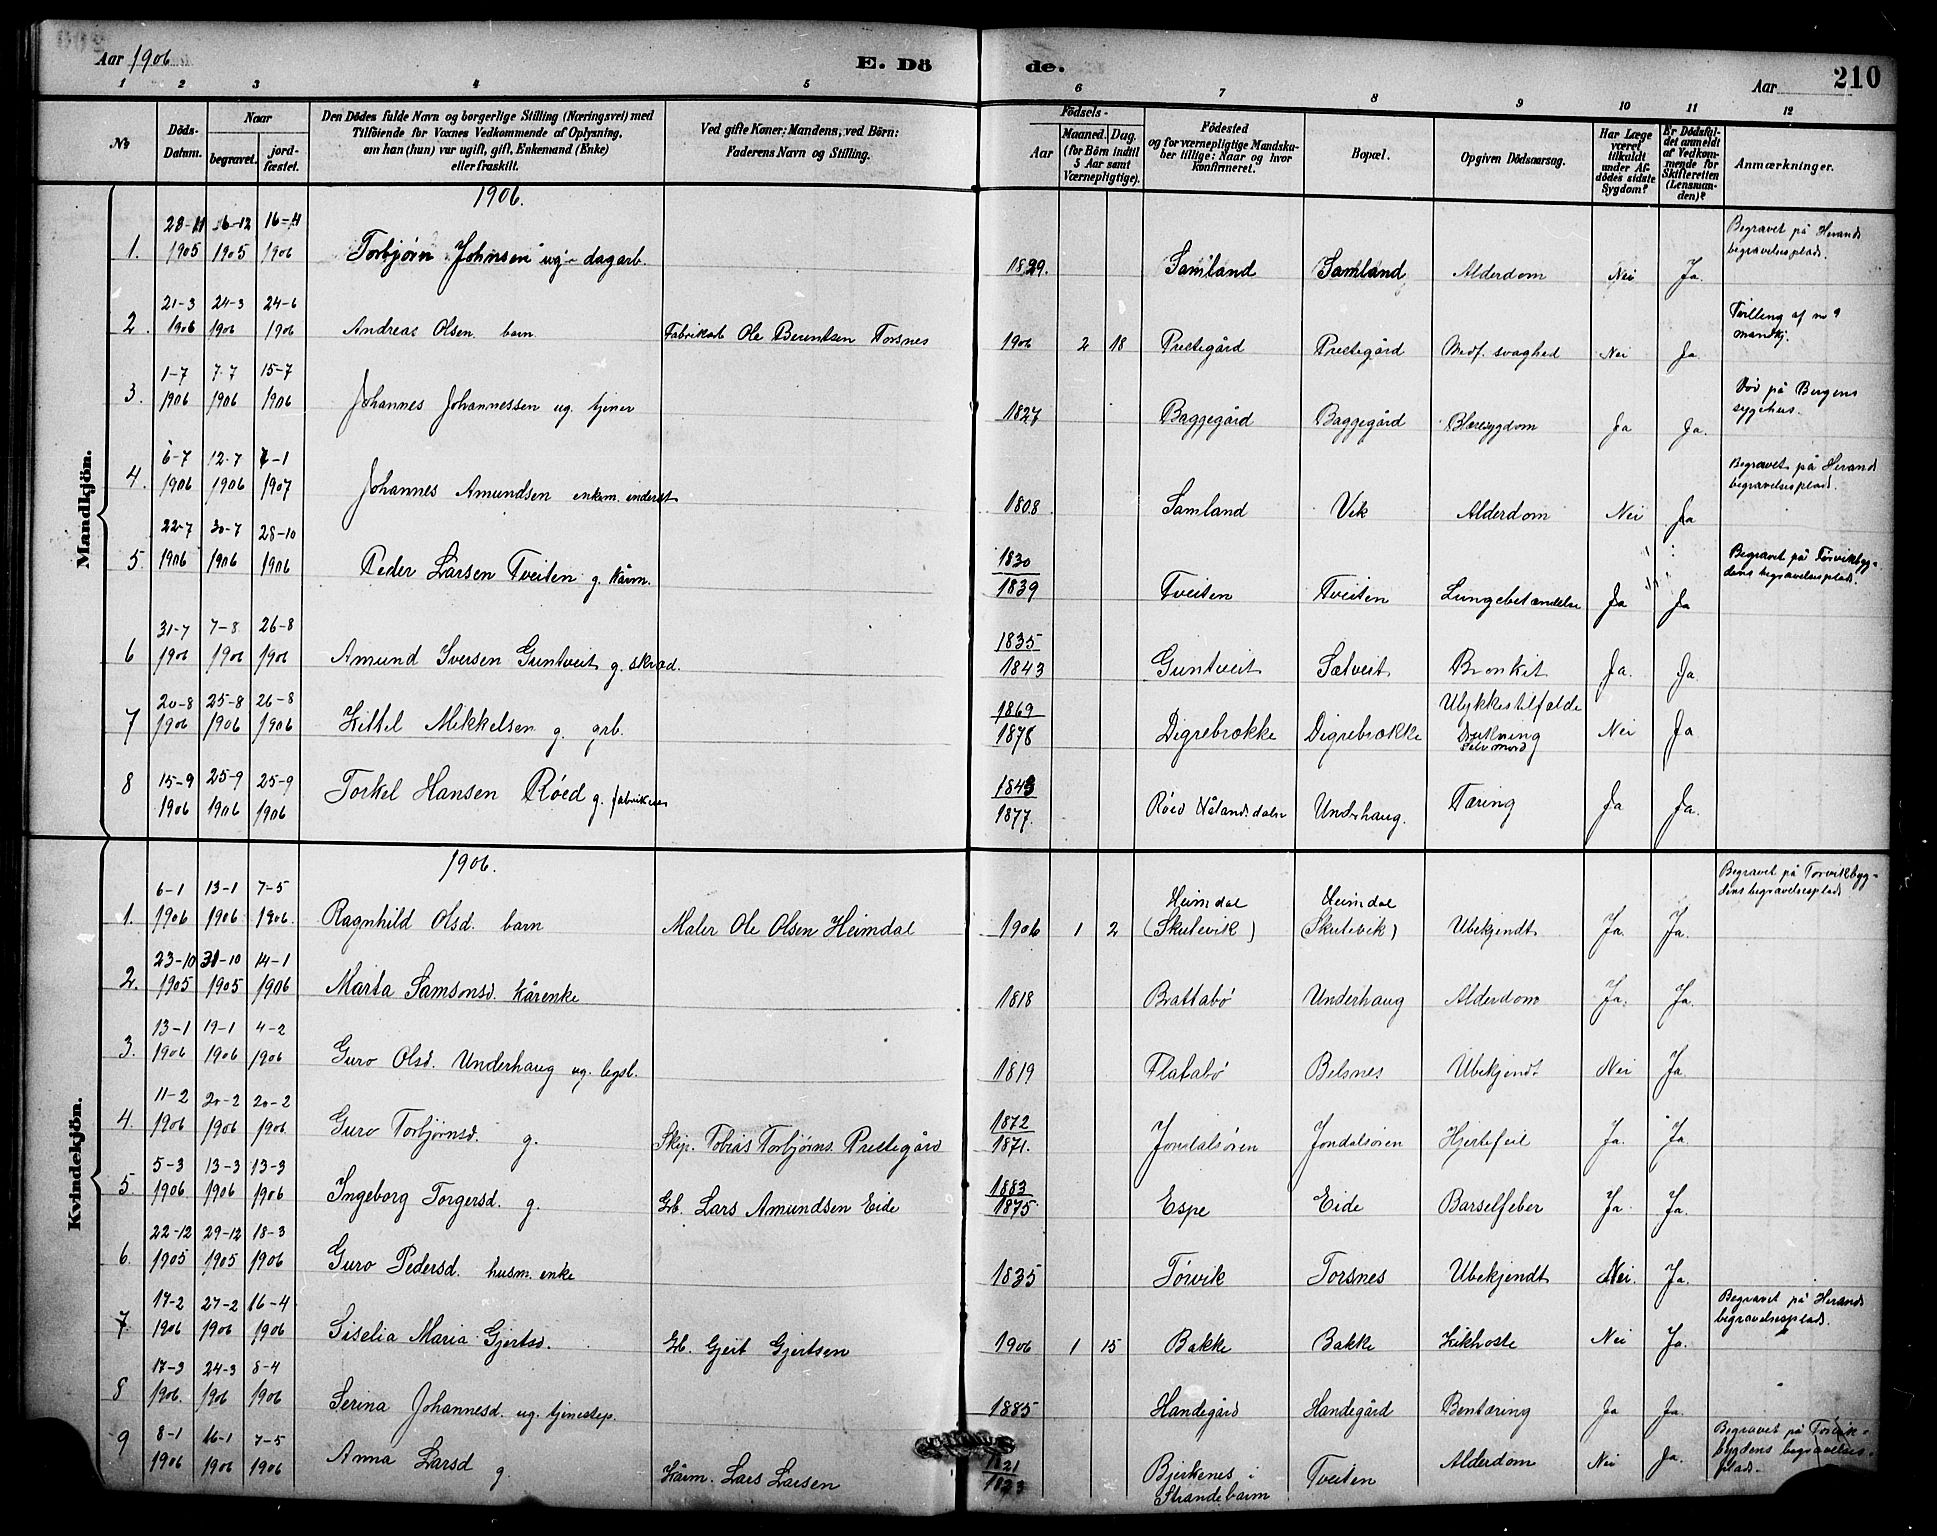 Aar 1906
E. Dö
de.
Aar
210
1 2 3 4 5 6 7 8 9 10 11 12
№
Döds-Datum.
Naar
begravet.
jord-fæstet.
Den Dödes fulde Navn og borgerlige Stilling (Næringsvei) med
Tilföiende for Voxnes Vedkommende af Oplysning,
om han (hun) var ugift, gift, Enkemand (Enke)
eller fraskilt.
Ved gifte Koner: Mandens, ved Börn:
Faderens Navn og Stilling.
Födsels-
Aar
Maaned. Dag.
(for Börn indtil
5 Aar samt
Værnepligtige).
Födested
og for værnepligtige Mandska-
ber tillige: Naar og hvor
konfirmeret.
Bopæl.
Opgiven Dödsaarsag.
Har Læge
været
tilkaldt
under Af-
dödes sidste
Sygdom?
Er Dödsfal-
det anmeldt
af Vedkom-
mende for
Skifteretten
(Lensman-
den)?
Anmærkninger.
Mandkjön.
1906.
1. 28-11 1905 6-12 1905 16-4 1906 Torbjørn Johnsen ug. dagarb. 1829. Samland Samland Alderdom Nei Ja. Begravet på Herands begravelsesplads.
2. 21-3 1906 24-3 1906 24-6 1906 Andreas Olsen barn. Fabrikarb Ole Berentsen Torsnes 1906 2 18 Prestegård Prestegård Medf. svaghed Nei Ja. Tvilling af nr 9 mandkj.
3. 1-7 1906 7-7 1906 15-7 1906 Johannes Johannessen ug. tjener 1827 Baggegård Baggegård Blæresygdom Ja Ja. Død på Bergens sygehus.
4. 6-7 1906 12-7 1906 1-1 1907 Johannes Amundsen enkem. inderst 1808 Samland Vik Alderdom Nei Ja Begravet på Herand begravelsesplads.
5. 22-7 1906 30-7 1906 28-10 1906 Peder Larsen Tveiten g. kårm. 1830 1839 Tveiten Tveiten Lungebetændelse Ja Ja Begravet på Torvikbyg-dens begravelsesplads.
6 31-7 1906 7-8 1906 26-8 1906 Amund Iversen Guntveit g. skræd. 1835 1843 Guntveit Sætveit Bronkit Ja. Ja.
7 20-8 1906 25-8 1906 26-8 1906 Kittel Mikkelsen g. grb. 1869 1878 Digrebrække Digrebrække Ulykkestilfælde Drukning Selvmord Nei Ja
8 15-9 1906 25-9 1906 25-9 1906 Torkel Hansen Røed g. 1843 1877. Røed Underhaug. Tæring Ja Ja.
Kvindekjön.
1906.
1. 6-1 1906 13-1 1906 7-5 1906. Ragnhild Olsd. barn Maler Ole Olsen Heimdal 1906 1 2 Heimdal (Skutevik) Heimdal (Skutevik) Ubekjendt Ja. Ja. Begravet på Torvikbyg-dens begravelsesplads
2. 23-10 1905 31-10 1905 14-1 1906 Marta Samsonsd. kårenke 1818 Brattabø Underhaug Alderdom Ja. Ja.
3. 13-1 1906 19-1 1906 4-2 1906 Guro Olsd. Underhaug ug. legsl. 1819 Flatabø Belsnes Ubekjendt Nei Ja
4. 11-2 1906 20-2 1906 20-2 1906 Guro Torbjørnsd. g. Skip. Tobias Torbjørns. Prestegård 1872 1871. Jondalsøren Jondalsøren Hjertefeil Ja. Ja.
5. 5-3 1906 13-3 1906 13-3 1906 Ingeborg Torgersd. g. Grb. Lars Amundsen Eide 1883 1875 Espe Eide Barselfeber Ja. Ja.
6. 22-12 1905 29-12 1905 18-3 1906 Guro Pedersd. husm. enke 1835 Tørvik Torsnes Ubekjendt Nei. Ja.
7 17-2 1906 27-2 1906 16-4 1906 Siselia Maria Gjertsd. Grb. Gjert Gjertsen 1906 1 15 Bakke Bakke Kikhoste Nei Ja. Begravet på Herands begravelsesplads.
8 17-3 1906. 24-3 1906 8-4 1906 Serina Johannesd. ug. tjenestep. 1885 Handegård Handegård Bentæring Ja Ja.
9 8-1 1906 16-1 1906 7-5 1906 Anna Larsd g. Kårm. Lars Larsen 1821 1823 Bjerkenes i Strandebarm Tveiten Alderdom Nei Ja. Begravet på Torvik-bygdens begravelses-plads.